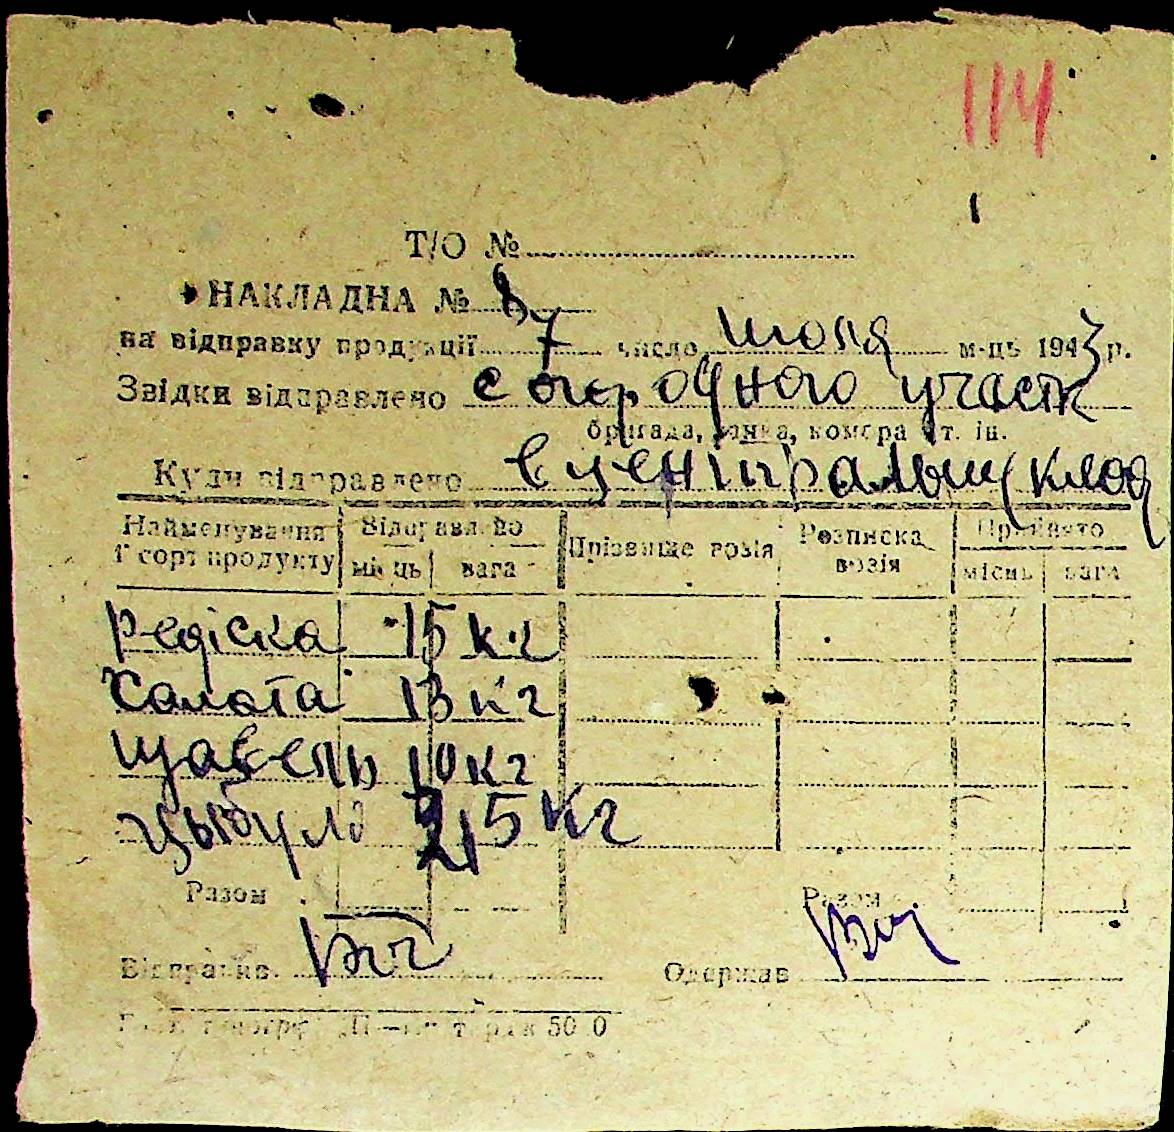 114
Т/О №
НАКЛАДНА № 8
на відправку продукції 7 число июля м-ць 1943 р.
Звідки відправлено с огородного участк
бригада, ланка, комора і т. ін.
Куди відправлено в центральн склад
Найменування і сорт продукту Відправлено Прізвище возія Розписка возія Прийнято
місць вага місць вага
редіска 15 кг
салата 13 кг
щавель 10 кг
цыбуля 2,5 кг
Разом Разом
Відправив Одержав
50 0